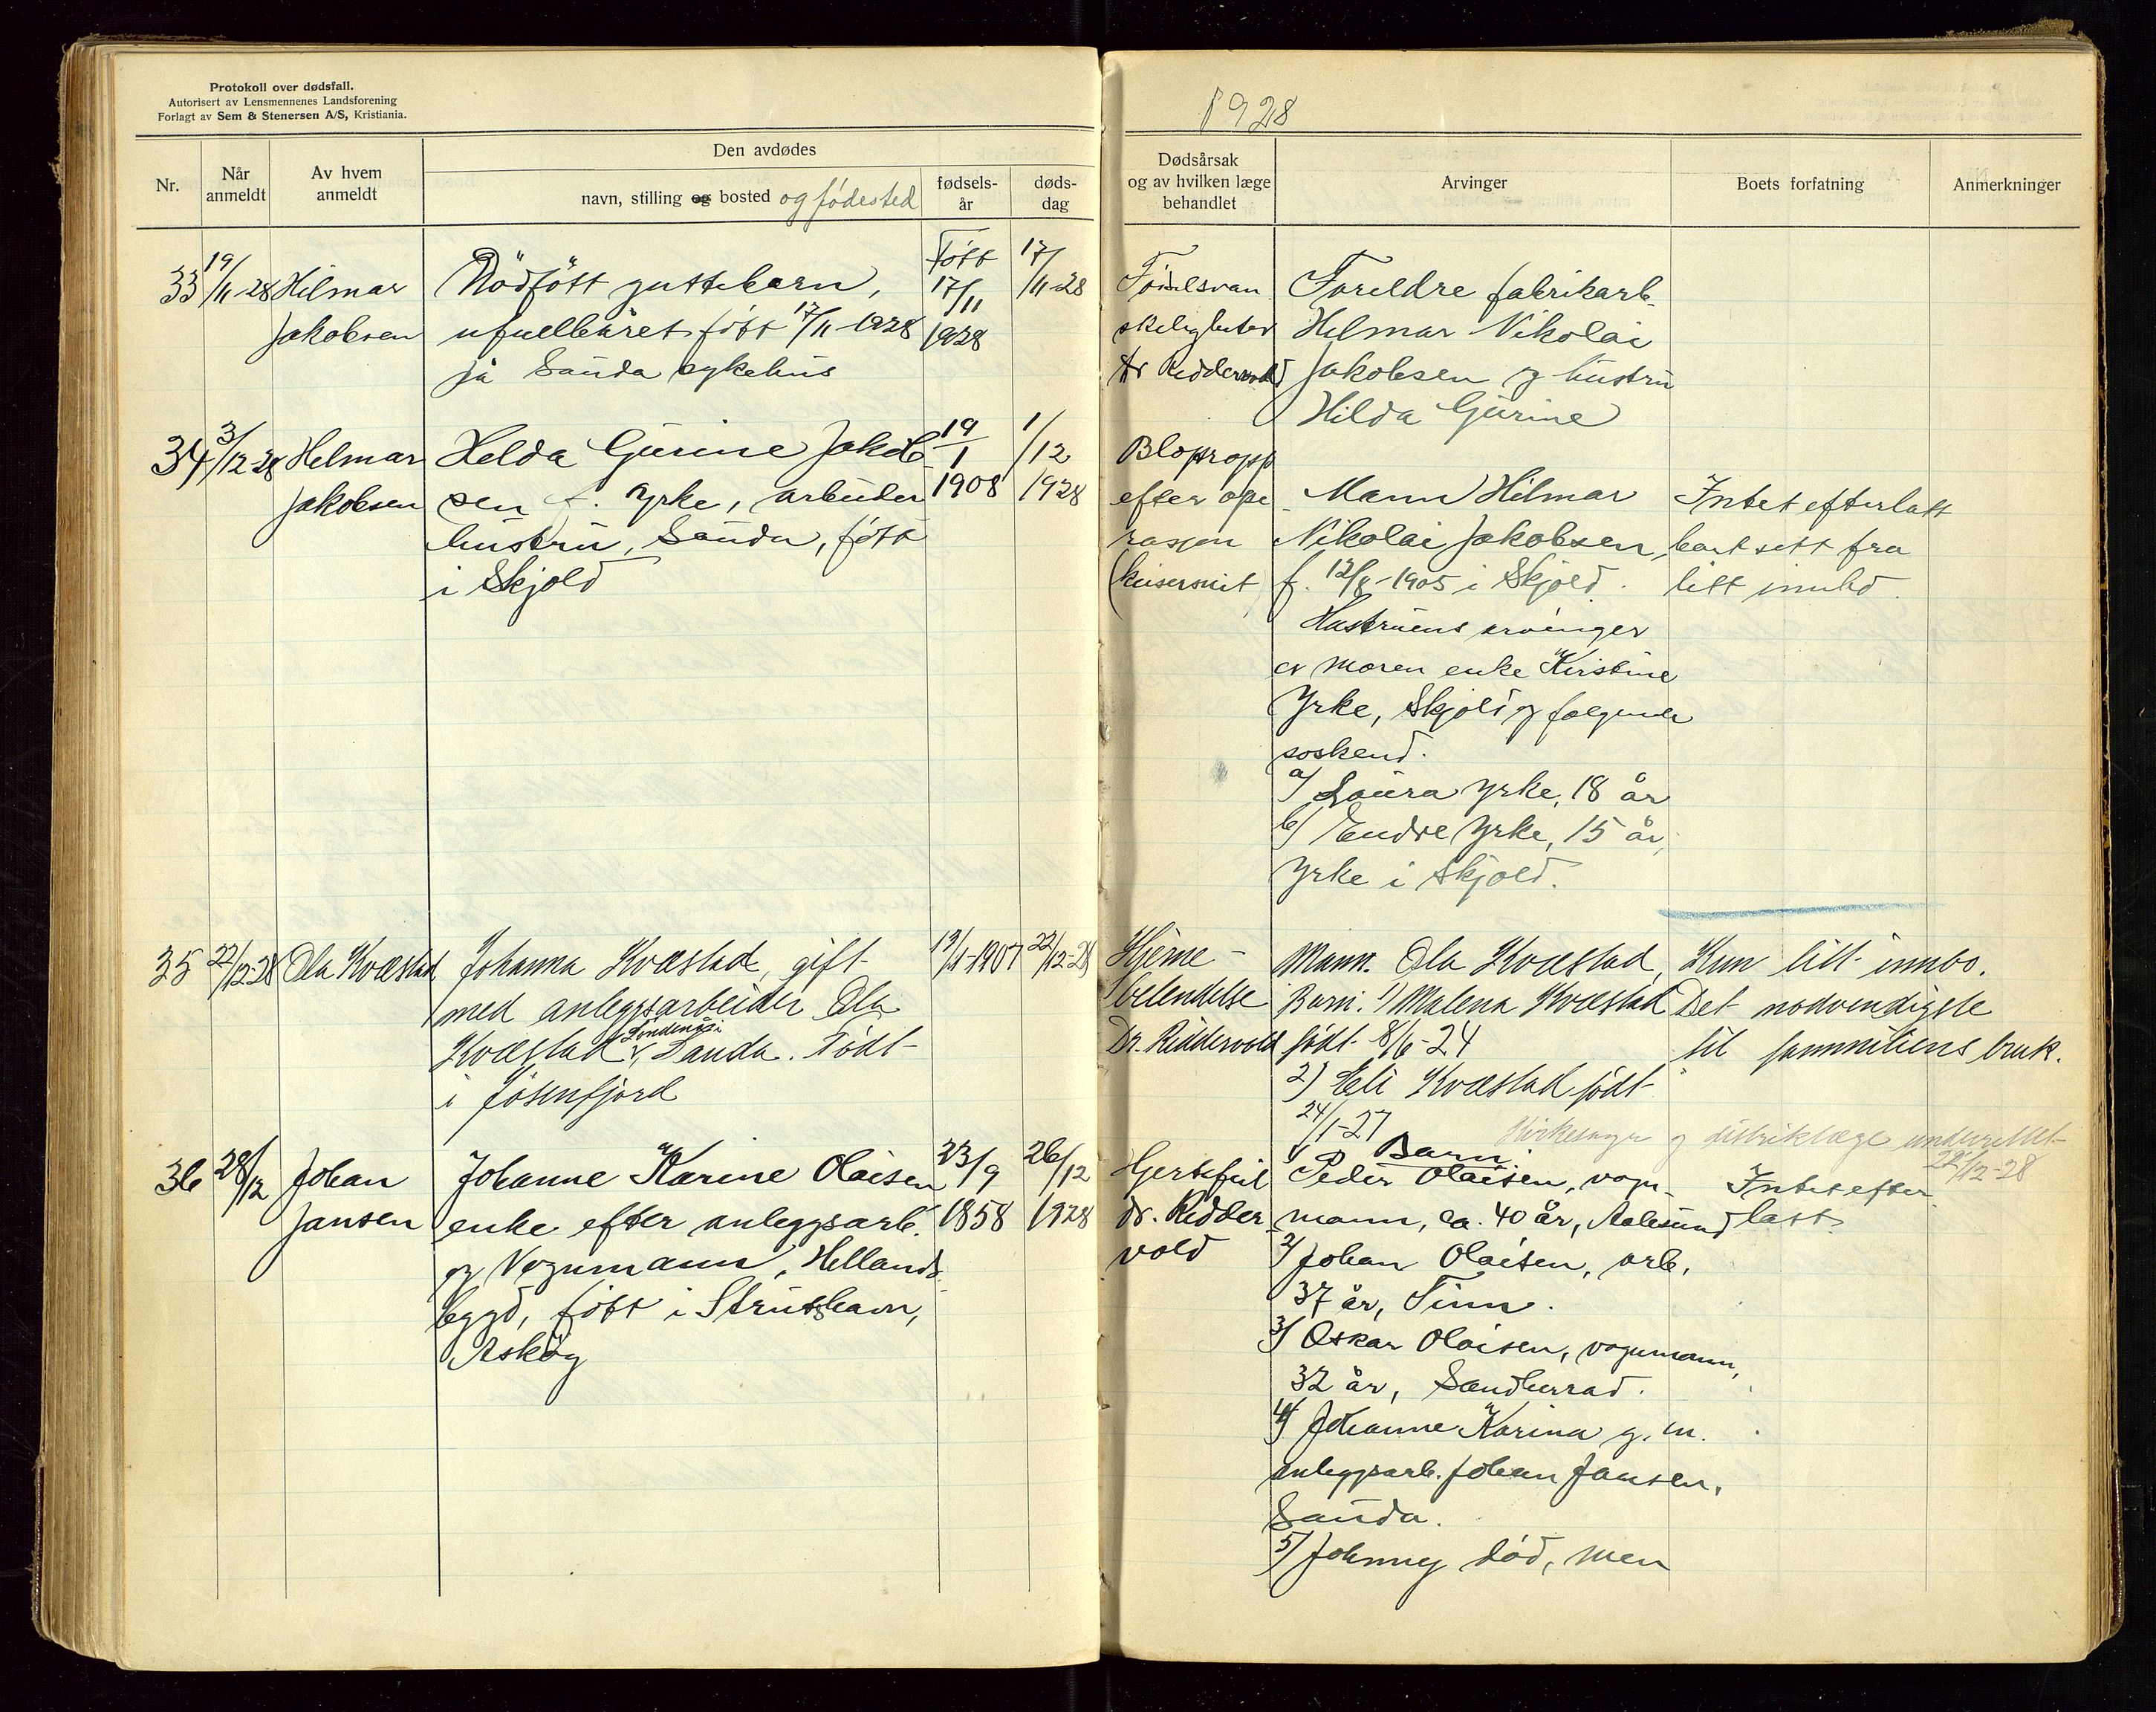 Protokoll over dødsfall.
Autorisert av Lensmennenes Landsforening
Forlagt av Sem & Stenersen A/S, Kristiania.
1928
Nr.
Når anmeldt
Av hvem anmeldt
Den avdødes
navn, stilling og bosted og fødested
fødsels-år
døds-dag
Dødsårsak og av hvilken læge behandlet
Arvinger
Boets forfatning
Anmerkninger
33
19/11-28
Hilmar
Jakobsen
Dödfött guttebarn,
ufullbåret født 17/11-1928
på Sauda sykehus
Født
17/11
1928
17/11-28
Fødselsvan
skeligheter
dr Riddervold
Foreldre fabrikarb.
Hilmar Nikolai
Jakobsen og hustru
Hilda Gurine
34
3/12-28
Helmar
Jakobsen
Helda Gurine Jakob
sen f. Yrke, arbeider
hustru, Sauda, født
i Skjold
19/1
1908
1/12
1928
Blopropp
efter ope
rasjon
(keisersnit
Mann Hilmar
Nikolai Jakobsen
f. 12/8-1905 i Skjold.
Hustruens arvinger
er moren enke Kirstine
Yrke, Skjold og følgende
søskend.
a/ Laura Yrke, 18 år
b/ Endre Yrke, 15 år,
Yrke i Skjold.
Intet efterlatt
bort sett fra
litt innbo.
35
22/12-28
Ola Kvæstad
Johanna Kvæstad, gift
med anleggsarbeider Ola
Kvæstad, Sauda. Født
i Jøsenfjord
22/12-28
Hjerne-
betendelse
Dr. Riddervold
Mann. Ola Kvæstad,
Barn. 1) Malena Kvæstad
født 8/6-24
2) Eli Kvæstad født
24/1-27
Kun litt innbo.
Det nødvendigste
til fammiliens bruk.
Kirkesogn og distriktlæge underrettet
22/12-28
36
28/12
Johan
Jansen
Johanne Karine Olaisen
enke efter anleggsarb.
og Vognmann, Hellands
bygd, født i Strusshavn,
Askøy
23/9
1858
26/12
1928
Hjertefeil
dr. Ridder
vold
Barn:
1/ Peder Olaisen, vogn-
mann, ca. 40 år, Aalesund
2/ Johan Olaisen, arb,
37 år, Tinn.
3/ Oskar Olaisen, vognmann,
32 år, Sandherrad.
4/ Johanne Karina g. m.
anleggsarb. Johan Jansen,
Sauda.
5/ Johnny død, men
Intet efter
latt.